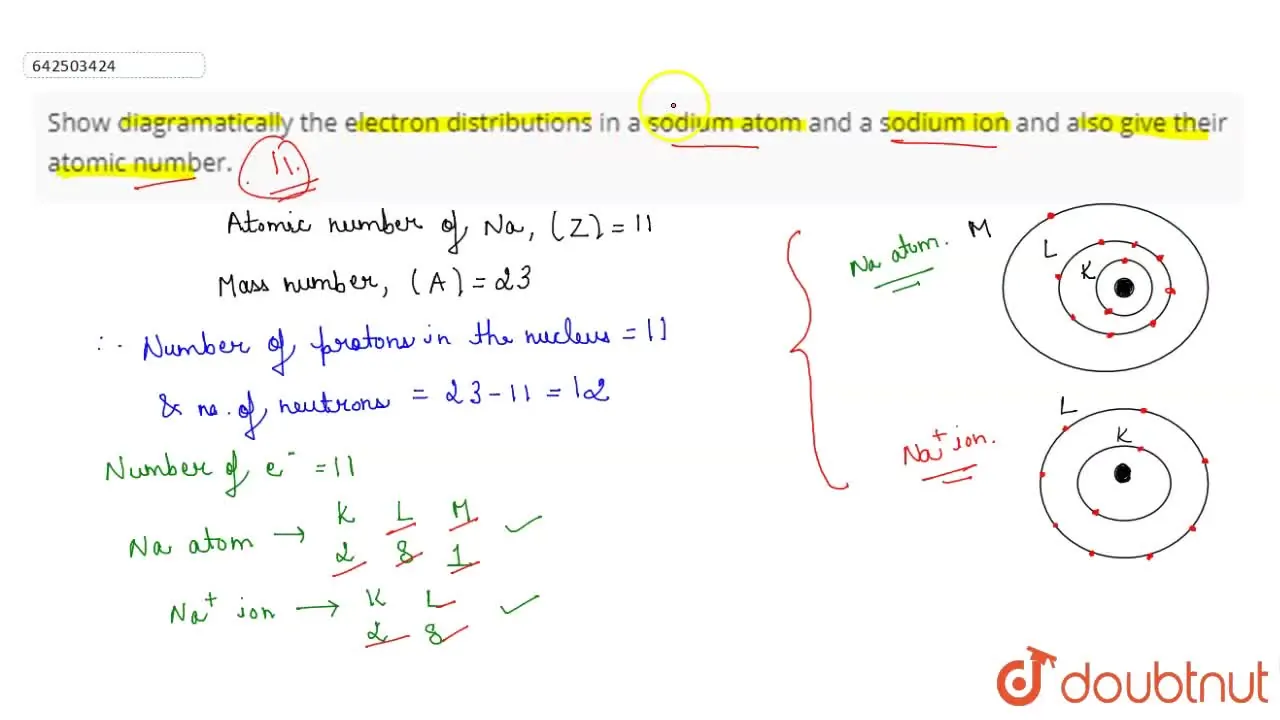 642503424
Show diagramatically the electron distributions in a sodium atom and a sodium ion and also give their
atomic number. 11.
Atomic number of Na, (Z) = 11
Mass number, (A) = 23
∴ Number of protons in the nucleus = 11
& no. of neutrons = 23 - 11 = 12
Number of e⁻ = 11
K L M
Na atom → 2 8 1
K L
Na⁺ ion → 2 8
Na atom.
M
L
K
Na⁺ ion.
L
K
doubtnut